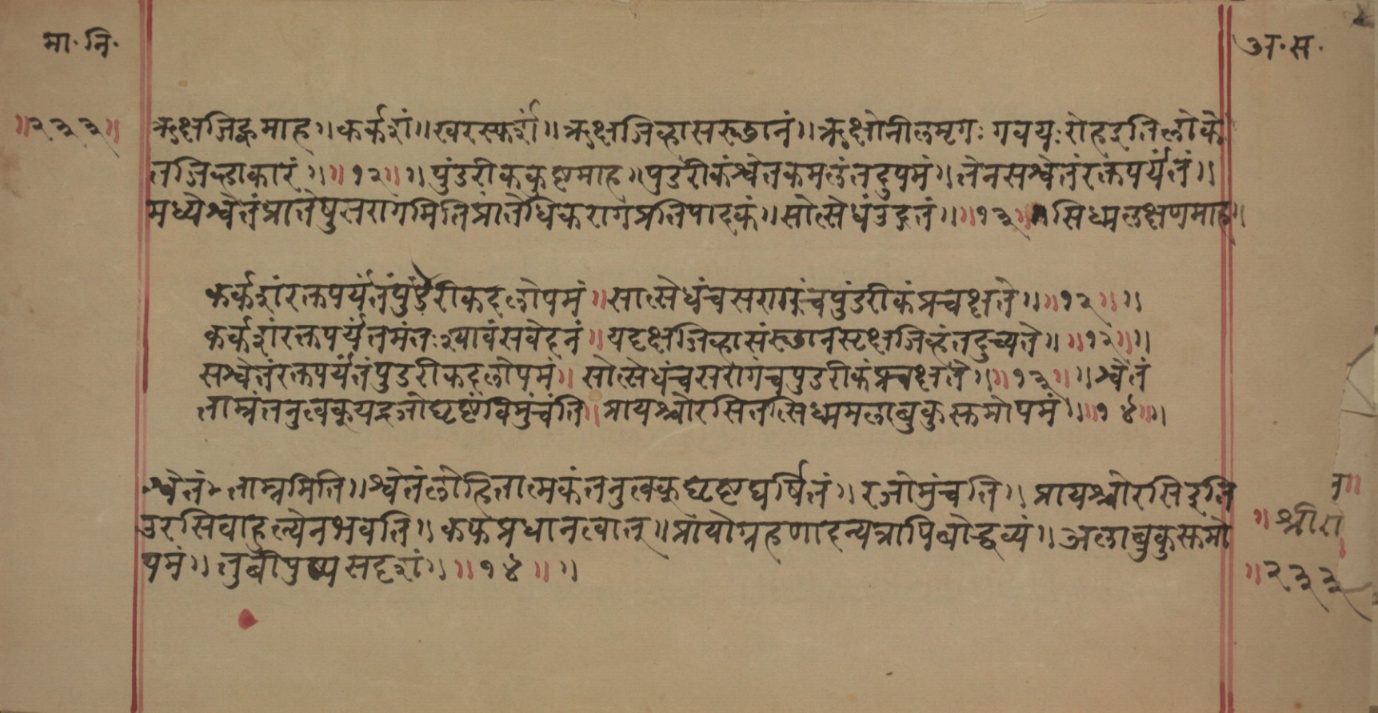 मा॰ नि॰
अ॰ स॰
॥२३३॥
ऋक्षजिह्वमाह॥ कर्कशं॥ खरस्पर्शं॥ ऋक्षजिव्हासरूतानं॥ ऋक्षोनीलमृगः गवयः रोहइतिलोके
तजिव्हाकारं॥ ॥१२॥ ॥ पुंडरीककुष्टमाह॥ पुडरीकंश्वेतकमलंतदुपमं॥ तेनसश्वेतंरक्तपर्यंतं॥
मध्येश्वेतंप्रांतेषुतरागमितिप्रांतेधिकरागप्रतिपादकं॥ सोत्सेधंउद्गतं॥ ॥१३॥ सिध्मलक्षणमाह॥
कर्कशंरक्तपर्यंतंपुंडरीकदलोपमं॥ सोत्सेधंचसरागंचपुंडरीकंप्रचक्षते॥ ॥१२॥ ॥
कर्कशंरक्तपर्यंतमंतःश्यावंसवेदनं॥ यदृक्षजिव्हासंस्तानमृक्षजिव्हंतदुच्यते॥ ॥१२॥ ॥
सश्वेतंरक्तपर्यंतंपुडरीकदलोपमं॥ सोत्सेधंचसरागंचपुडरीकंप्रचक्षते॥ ॥१३॥ ॥ श्वेतं
ताम्रंतनुत्वकूयद्रजोघृष्टंविमुंचंति॥ प्रायश्चोरसितत्सिध्ममलाबुकुस्तमोपमं॥ ॥१४॥ ॥
श्वेतं ताम्रमिति॥ श्वेतंलोहितात्मकंतनुत्वकूघृष्टघर्षितं॥ रजोमुंचति॥ प्रायश्चोरसिइति
उरसिबाहुल्येनभवति॥ कफप्रधानत्वात्॥ प्रायोग्रहणादन्यत्रापिबोद्धव्यं॥ अलाबुकुस्तमो
पमं॥ तुबीपुष्पसदृशं॥ ॥१४॥ ॥
॥श्रीरा
॥२३३